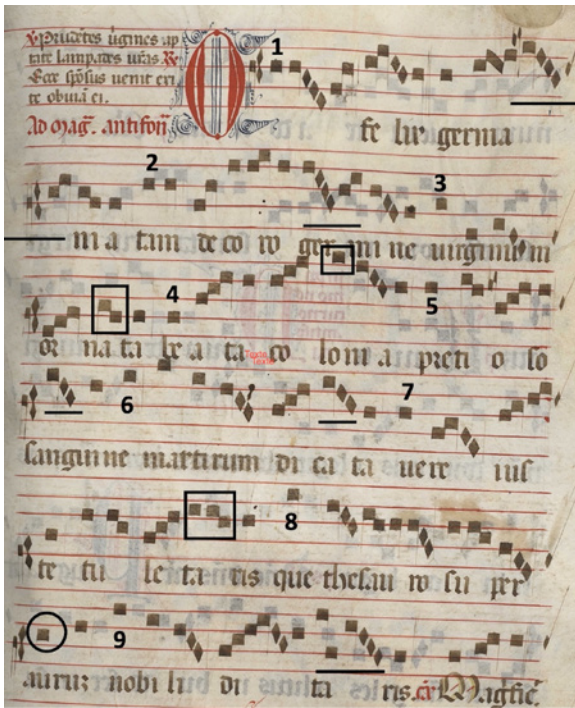 v. Prudētes v̄gines ap
tate lampades vr̄as R̄
Ecce spōsus uenit exi
te obuiā ei.
Ad Mag̃. antifon̄
1
fe lix germa
2
3
ni a tam de co ro ger mi ne uirginum
4
5
or na ta le a ta co loni a preti o so
Texto
6
7
sanguine martirum di ca ta uere ius
8
te tu le ta ris que thesau ro su per
9
aurum nobi li di ta ris. Magfic̄.